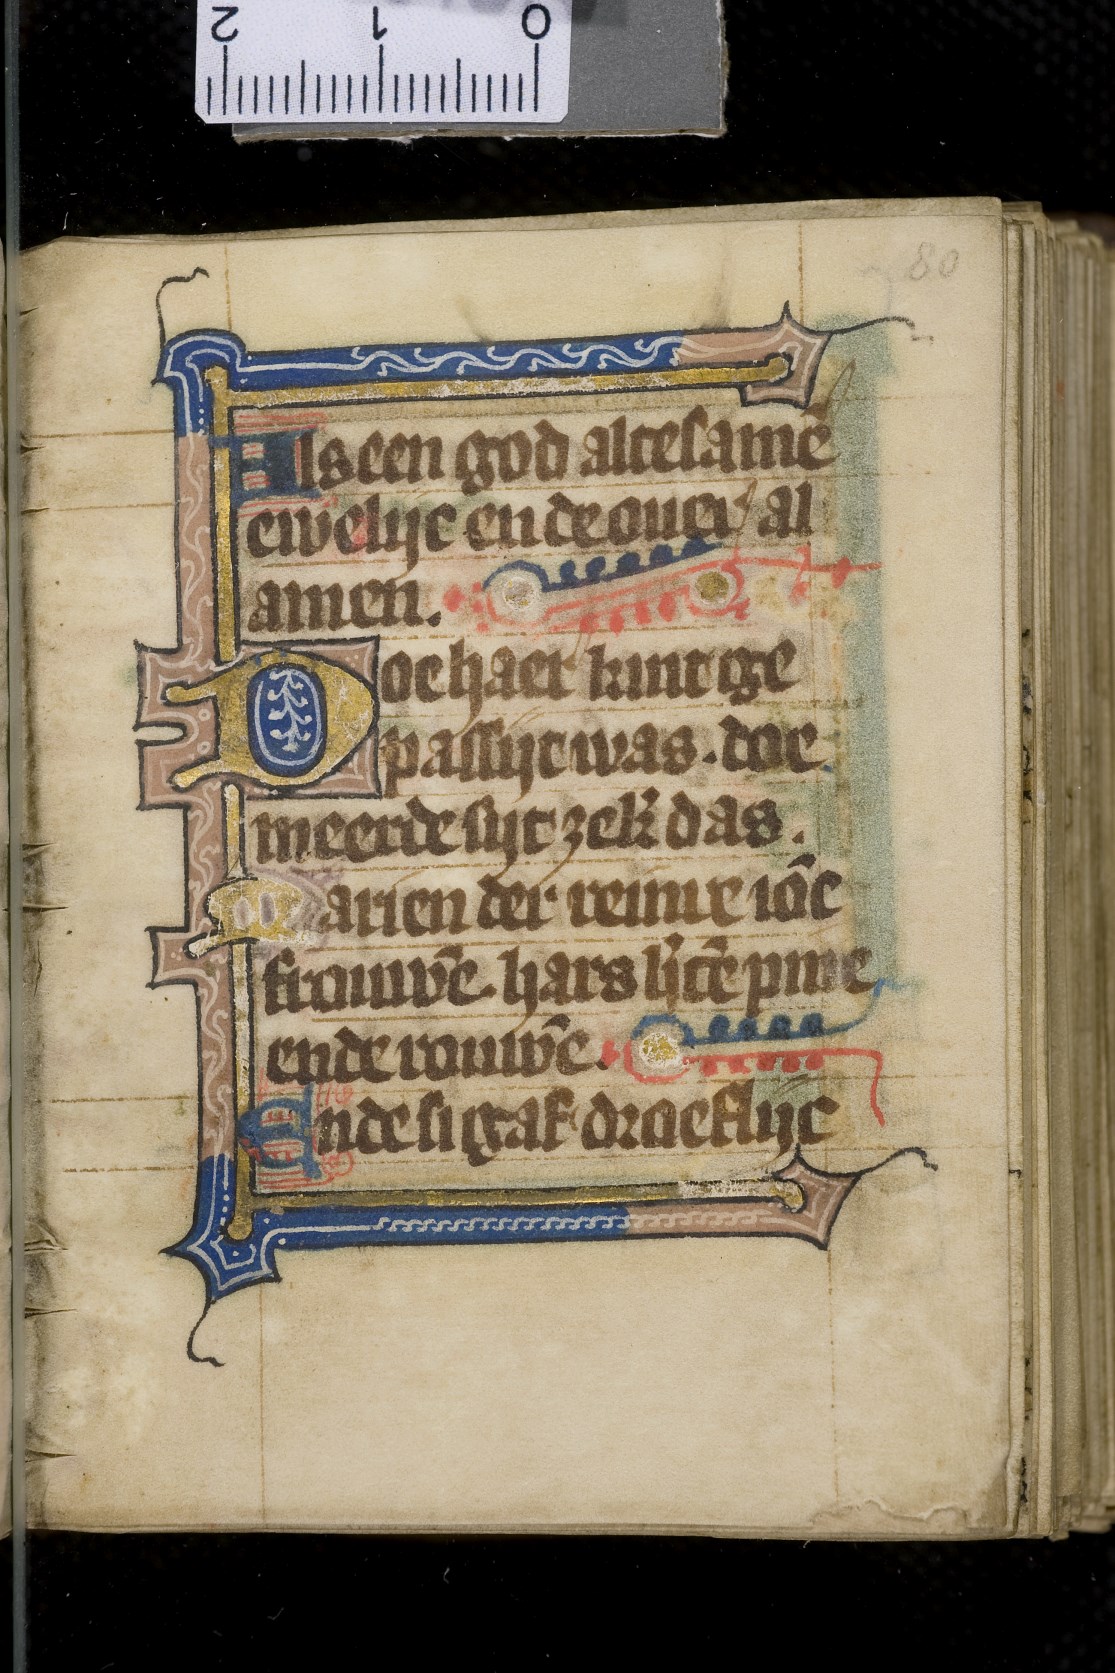 2 1 0
80
Als een god altesamē
ewelijc ende ouer al
amen.
Doe haer kint ge
passijt was. doe
meerde sijt zek̄ das.
Marien der reinre iōc
frouwē. hars h̄tē pine
ende rouwē.
Ende si gaf droeflijc